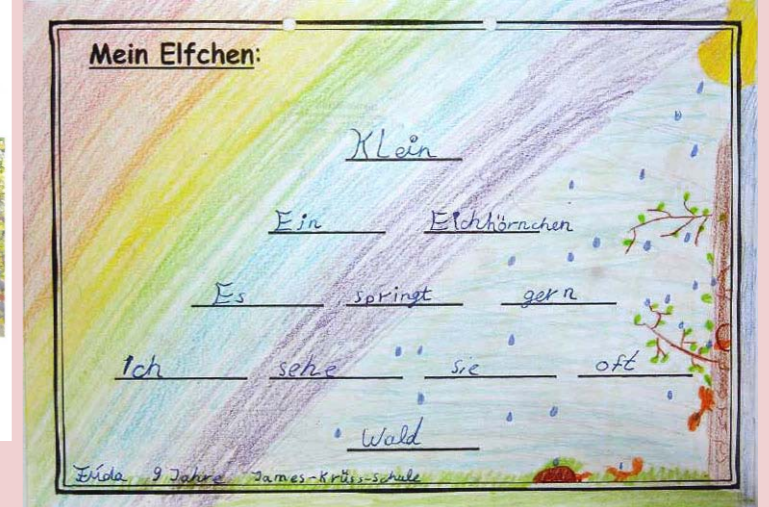 Mein Elfchen:
Klein
Ein Eichhörnchen
Es springt gern
Ich sehe sie oft
Wald
Frida 9 Jahre James-Krüss-Schule